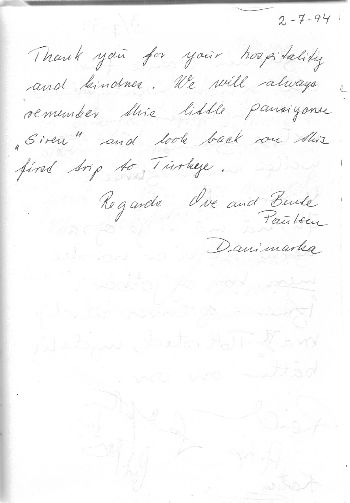 2-7-94.
Thank you for your hospitality
and kindnes. We will always
remember this little pansiyonu
„Siren" and look back on this
first trip to Türkeye.
Regards Ove and Bente
Paulsen
Danimarka